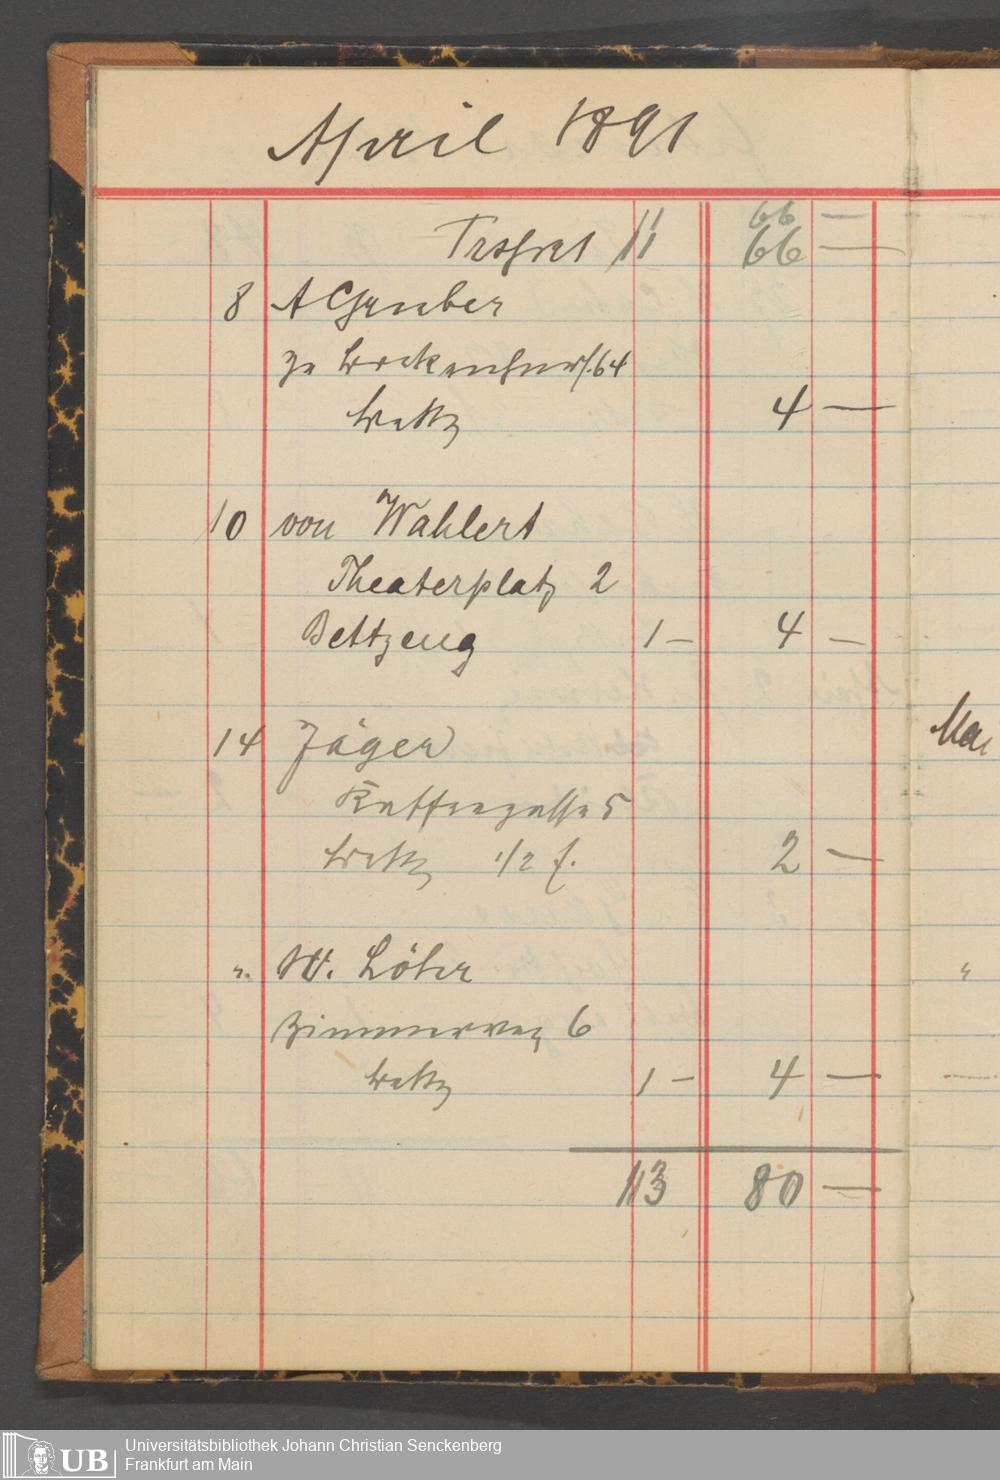 April 1891
66 —
Trsprt 11 66 —
8 A Gruber
Gr Bockenhmrs/.64
Bettz 4 —
10 von Wahlert
Theaterplatz 2
Bettzeug 1 — 4 —
14 Jäger
Mai
gasse 5
Bettz 1/2 f. 2 —
". W. Löhr
Zimmerweg 6
Bettz 1 — 4 —
13 80 —
UB
Universitätsbibliothek Johann Christian Senckenberg
Frankfurt am Main